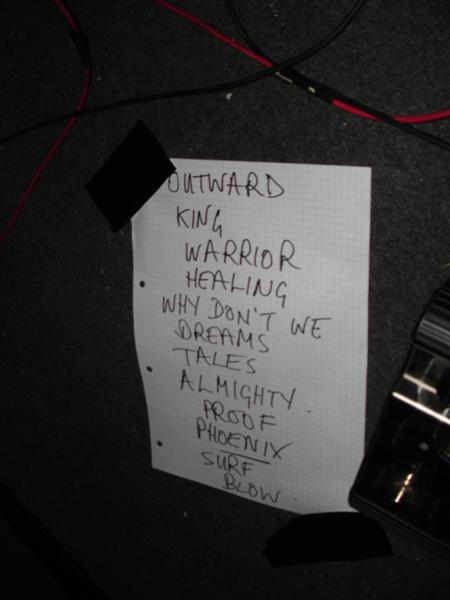 OUTWARD
KING
WARRIOR
HEALING
WHY DON'T WE
DREAMS
TALES
ALMIGHTY.
PROOF
PHOENIX
SURF
BLOW.